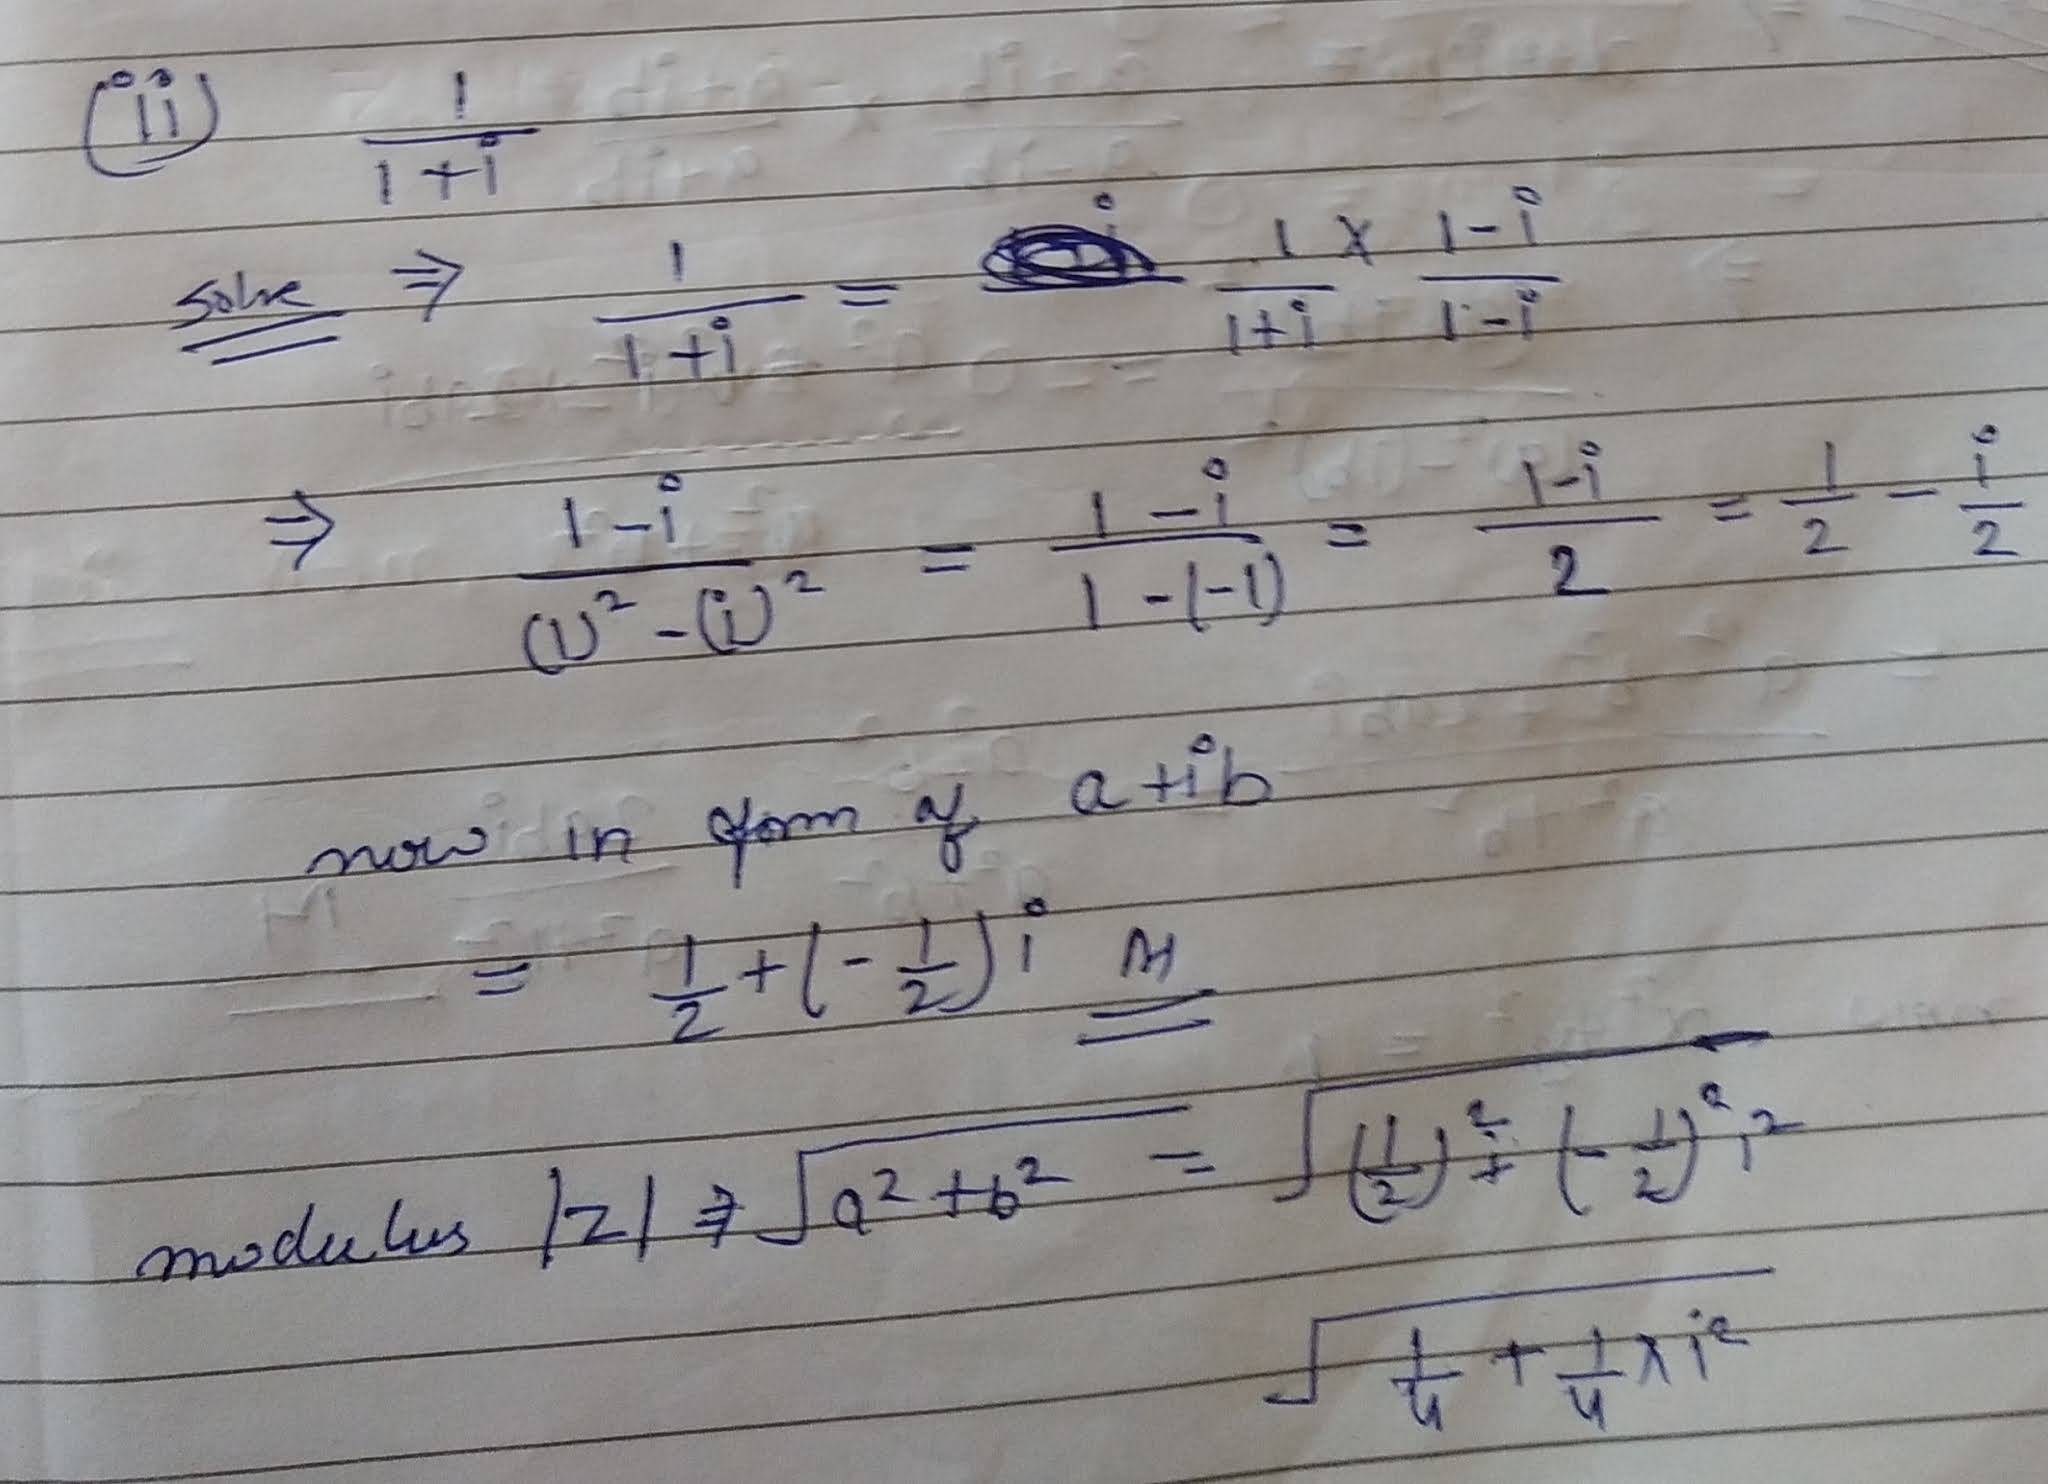 (ii) 1/(1+i)
Solve ⇒ 1/(1+i) = 1/(1+i) × (1-i)/(1-i)
⇒ (1-i)/((1)² - (i)²) = (1-i)/(1-(-1)) = (1-i)/2 = 1/2 - i/2
now in form of a+ib
= 1/2 + (-1/2)i
modulus |z| ⇒ √(a²+b²) = √((1/2)² + (-1/2)² i²)
√(1/4 + 1/4 × i²)